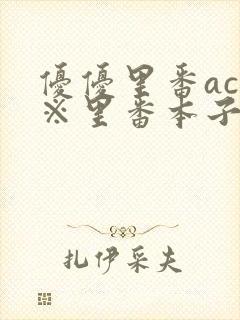 優優里番ac
※里番本子
扎伊采夫